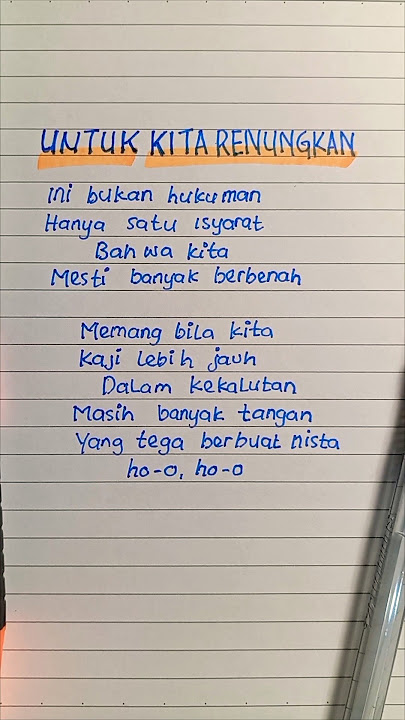 UNTUK KITA RENUNGKAN
Ini bukan hukuman
Hanya satu isyarat
Bahwa kita
Mesti banyak berbenah
Memang bila kita
Kaji lebih jauh
Dalam kekalutan
Masih banyak tangan
Yang tega berbuat nista
ho-o, ho-o